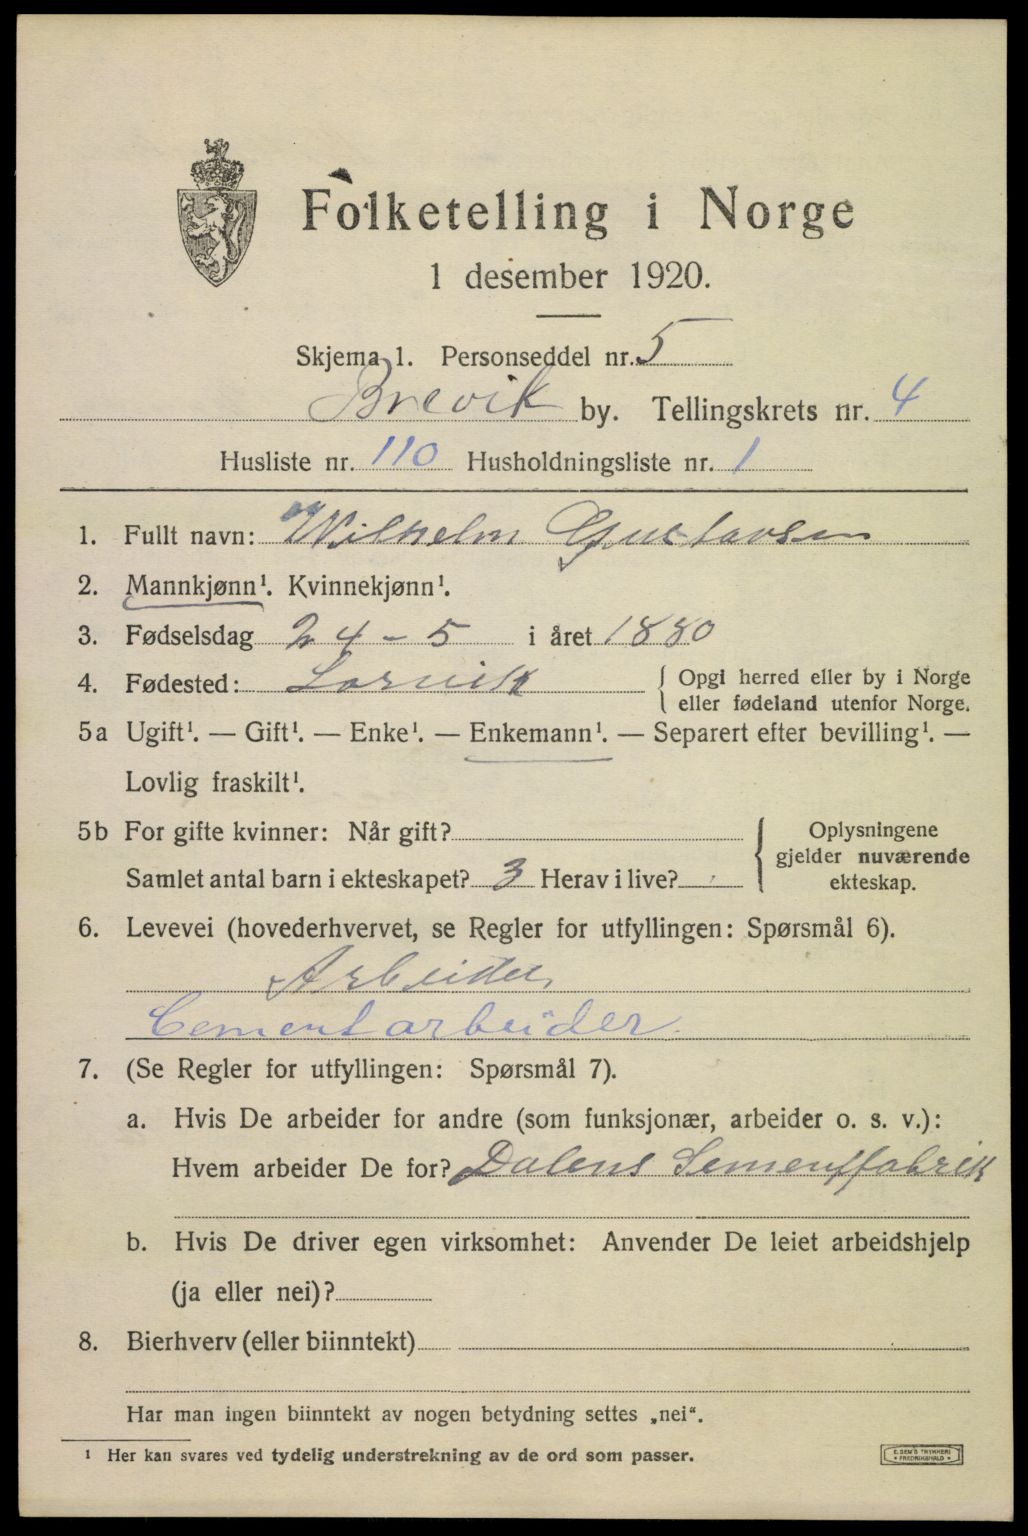 Folketelling i Norge
1 desember 1920.
Skjema 1. Personseddel nr. 5
Brevik by. Tellingskrets nr. 4
Husliste nr. 110 Husholdningsliste nr. 1
1. Fullt navn: Wilhelm Gustavsen
2. Mannkjønn¹. Kvinnekjønn¹.
3. Fødselsdag 24-5 i året 1880
4. Fødested: Larvik { Opgi herred eller by i Norge
eller fødeland utenfor Norge.
5a Ugift¹. — Gift¹. — Enke¹. — Enkemann¹. — Separert efter bevilling¹. —
Lovlig fraskilt¹.
5b For gifte kvinner: Når gift?
Samlet antal barn i ekteskapet? 3 Herav i live?
Oplysningene
gjelder nuværende
ekteskap.
6. Levevei (hovederhvervet, se Regler for utfyllingen: Spørsmål 6).
Arbeider
Cementarbeider.
7. (Se Regler for utfyllingen: Spørsmål 7).
a. Hvis De arbeider for andre (som funksjonær, arbeider o. s. v.):
Hvem arbeider De for? Dalens Sementfabrik
b. Hvis De driver egen virksomhet: Anvender De leiet arbeidshjelp
(ja eller nei)?
8. Bierhverv (eller biinntekt)
Har man ingen biinntekt av nogen betydning settes „nei".
¹ Her kan svares ved tydelig understrekning av de ord som passer.
E. SEM'S TRYKKERI
• FREDRIKSHALD •